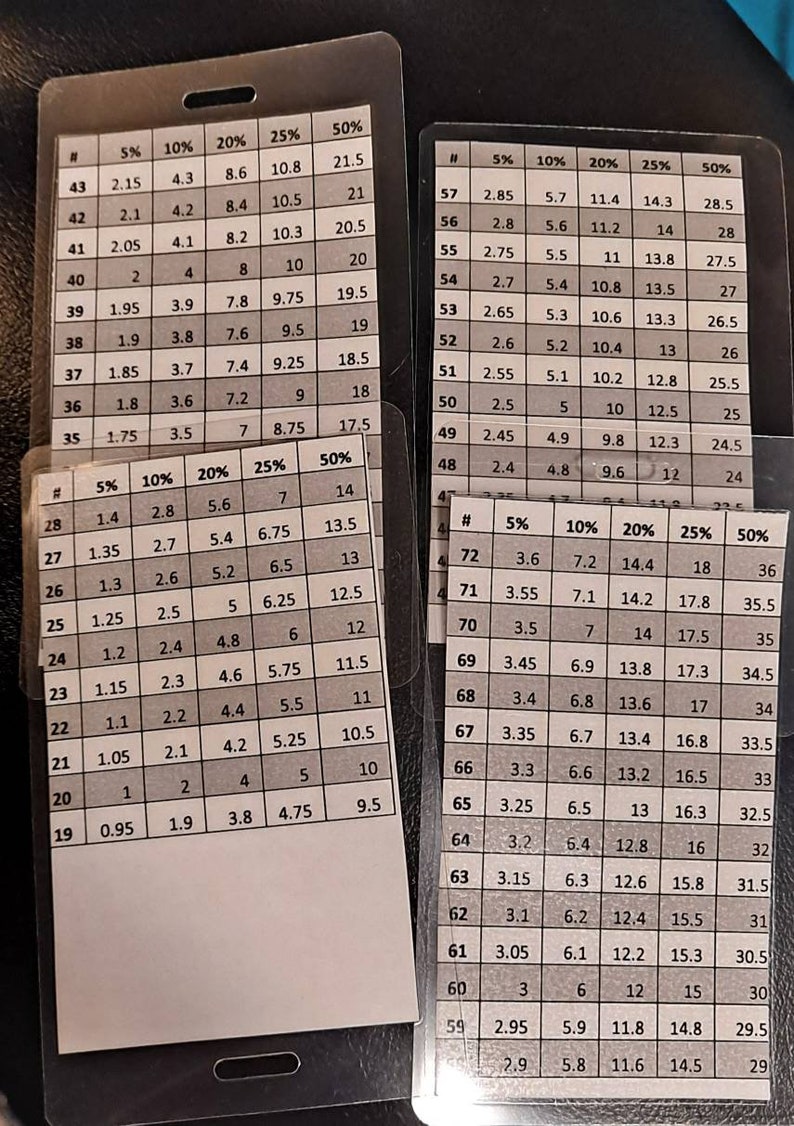 # 5% 10% 20% 25% 50%
43 2.15 4.3 8.6 10.8 21.5
42 2.1 4.2 8.4 10.5 21
41 2.05 4.1 8.2 10.3 20.5
40 2 4 8 10 20
39 1.95 3.9 7.8 9.75 19.5
38 1.9 3.8 7.6 9.5 19
37 1.85 3.7 7.4 9.25 18.5
36 1.8 3.6 7.2 9 18
35 1.75 3.5 7 8.75 17.5
# 5% 10% 20% 25% 50%
28 1.4 2.8 5.6 7 14
27 1.35 2.7 5.4 6.75 13.5
26 1.3 2.6 5.2 6.5 13
25 1.25 2.5 5 6.25 12.5
24 1.2 2.4 4.8 6 12
23 1.15 2.3 4.6 5.75 11.5
22 1.1 2.2 4.4 5.5 11
21 1.05 2.1 4.2 5.25 10.5
20 1 2 4 5 10
19 0.95 1.9 3.8 4.75 9.5
# 5% 10% 20% 25% 50%
57 2.85 5.7 11.4 14.3 28.5
56 2.8 5.6 11.2 14 28
55 2.75 5.5 11 13.8 27.5
54 2.7 5.4 10.8 13.5 27
53 2.65 5.3 10.6 13.3 26.5
52 2.6 5.2 10.4 13 26
51 2.55 5.1 10.2 12.8 25.5
50 2.5 5 10 12.5 25
49 2.45 4.9 9.8 12.3 24.5
48 2.4 4.8 9.6 12 24
# 5% 10% 20% 25% 50%
72 3.6 7.2 14.4 18 36
71 3.55 7.1 14.2 17.8 35.5
70 3.5 7 14 17.5 35
69 3.45 6.9 13.8 17.3 34.5
68 3.4 6.8 13.6 17 34
67 3.35 6.7 13.4 16.8 33.5
66 3.3 6.6 13.2 16.5 33
65 3.25 6.5 13 16.3 32.5
64 3.2 6.4 12.8 16 32
63 3.15 6.3 12.6 15.8 31.5
62 3.1 6.2 12.4 15.5 31
61 3.05 6.1 12.2 15.3 30.5
60 3 6 12 15 30
59 2.95 5.9 11.8 14.8 29.5
2.9 5.8 11.6 14.5 29